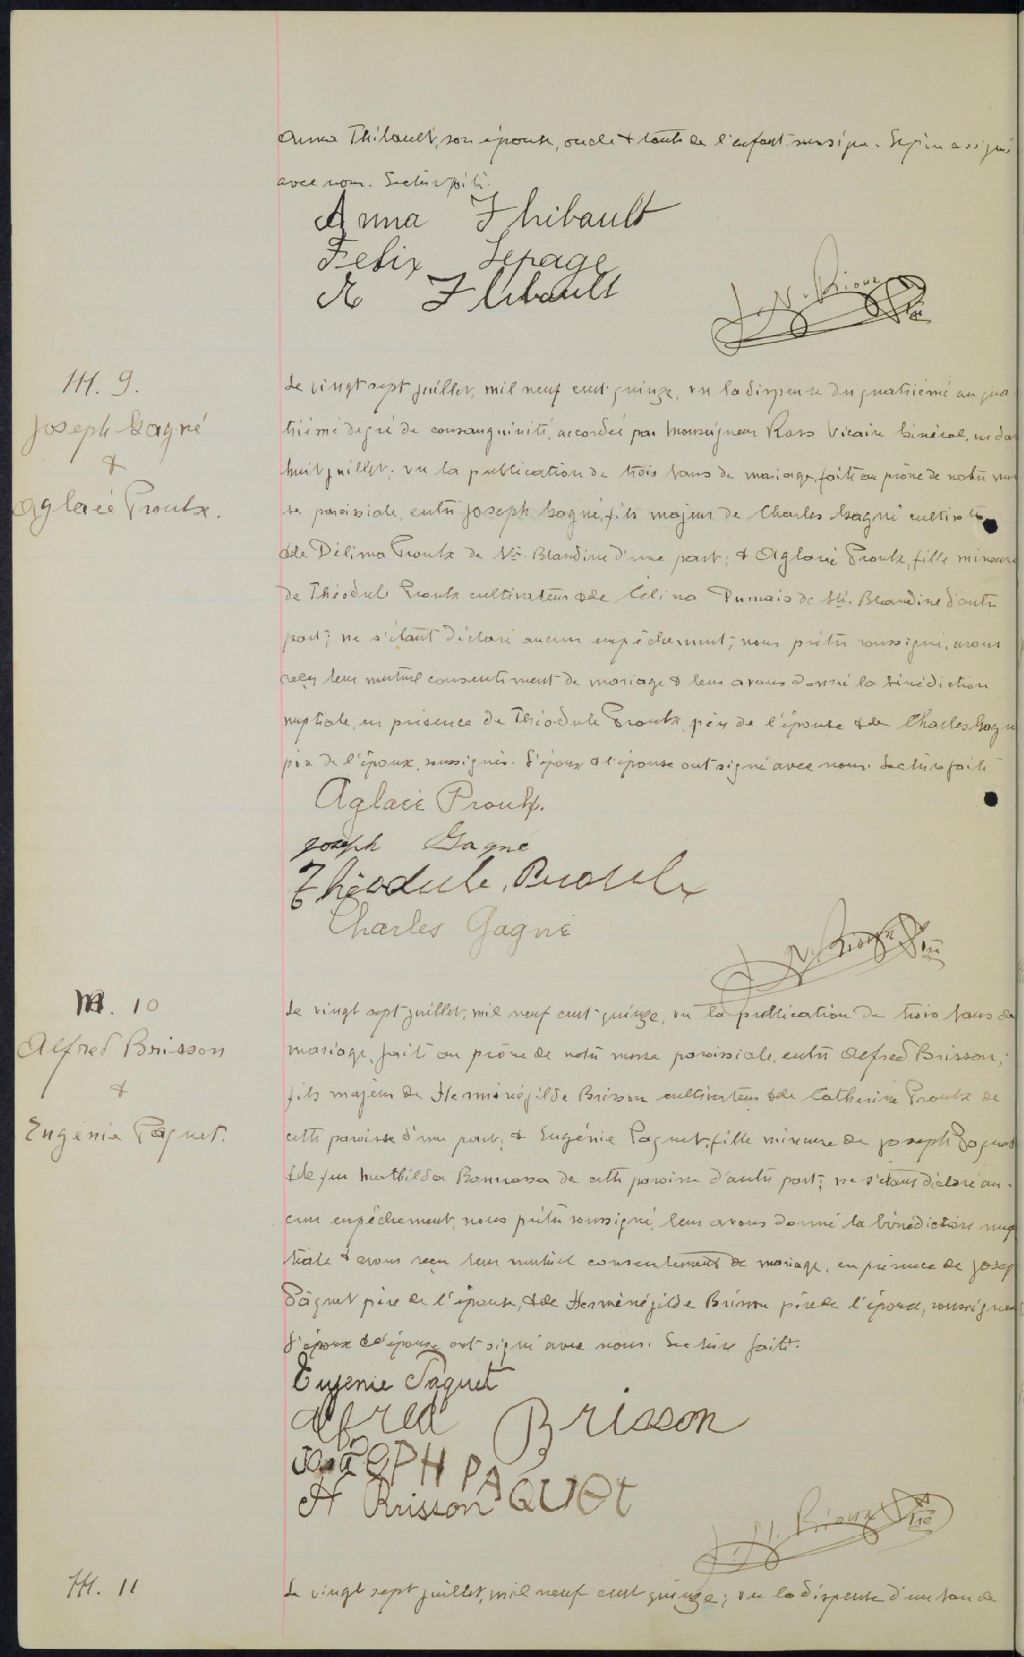 Anna Thibault, son épouse, oncle & tante de l'enfant soussignés. Le père a signé
avec nous. Lecture faite.
Anna Thibault
Felix Lepage
A Thibault
J. N. Rioux Ptre
M. 9.
Joseph Gagné
&
Aglaée Proulx.
Le vingt sept juillet, mil neuf cent quinze, vu la dispense du quatrième au qua
trième degré de consanguinité, accordée par Monseigneur Ross Vicaire Général, en date
huit juillet; vu la publication de trois bans de mariage, faite au prône de notre mes
se paroissiale, entre Joseph Gagné, fils majeur de Charles Gagné cultivateur
& de Délima Proulx de Ste. Blandine d'une part; & Aglaée Proulx, fille mineure
de Théodule Proulx cultivateur & de Célina Dumais de Ste. Blandine d'autre
part; ne s'étant déclaré aucun empêchement; nous prêtre soussigné, avons
reçu leur mutuel consentement de mariage & leur avons donné la bénédiction
nuptiale, en présence de Théodule Proulx, père de l'épouse & de Charles Gagné
père de l'époux, soussignés. L'époux & l'épouse ont signé avec nous. Lecture faite
Aglaée Proulx.
Joseph Gagné
Théodule Proulx
Charles Gagné
J. N. Rioux Ptre
M. 10
Alfred Brisson
&
Eugénie Paquet.
Le vingt sept juillet, mil neuf cent quinze, vu la publication de trois bans de
mariage, faite au prône de notre messe paroissiale, entre Alfred Brisson,
fils majeur de Herménégilde Brisson cultivateur & de Catherine Proulx de
cette paroisse d'une part; & Eugénie Paquet, fille mineure de Joseph Paquet
& de feu Mathilda de cette paroisse d'autre part; ne s'étant déclaré au-
cun empêchement, nous prêtre soussigné, leur avons donné la bénédiction nup
tiale & avons reçu leur mutuel consentement de mariage, en présence de Josep
Pâquet père de l'épouse, & de Herménégilde Brisson père de l'époux, soussignés
L'époux & l'épouse ont signé avec nous. Lecture faite.
Eugenie Paquet
Alfred Brisson
JosEPH PAQUEt
H Brisson
J. N. Rioux Ptre
M. 11
Le vingt sept juillet, mil neuf cent quinze; vu la dispense d'un ban de